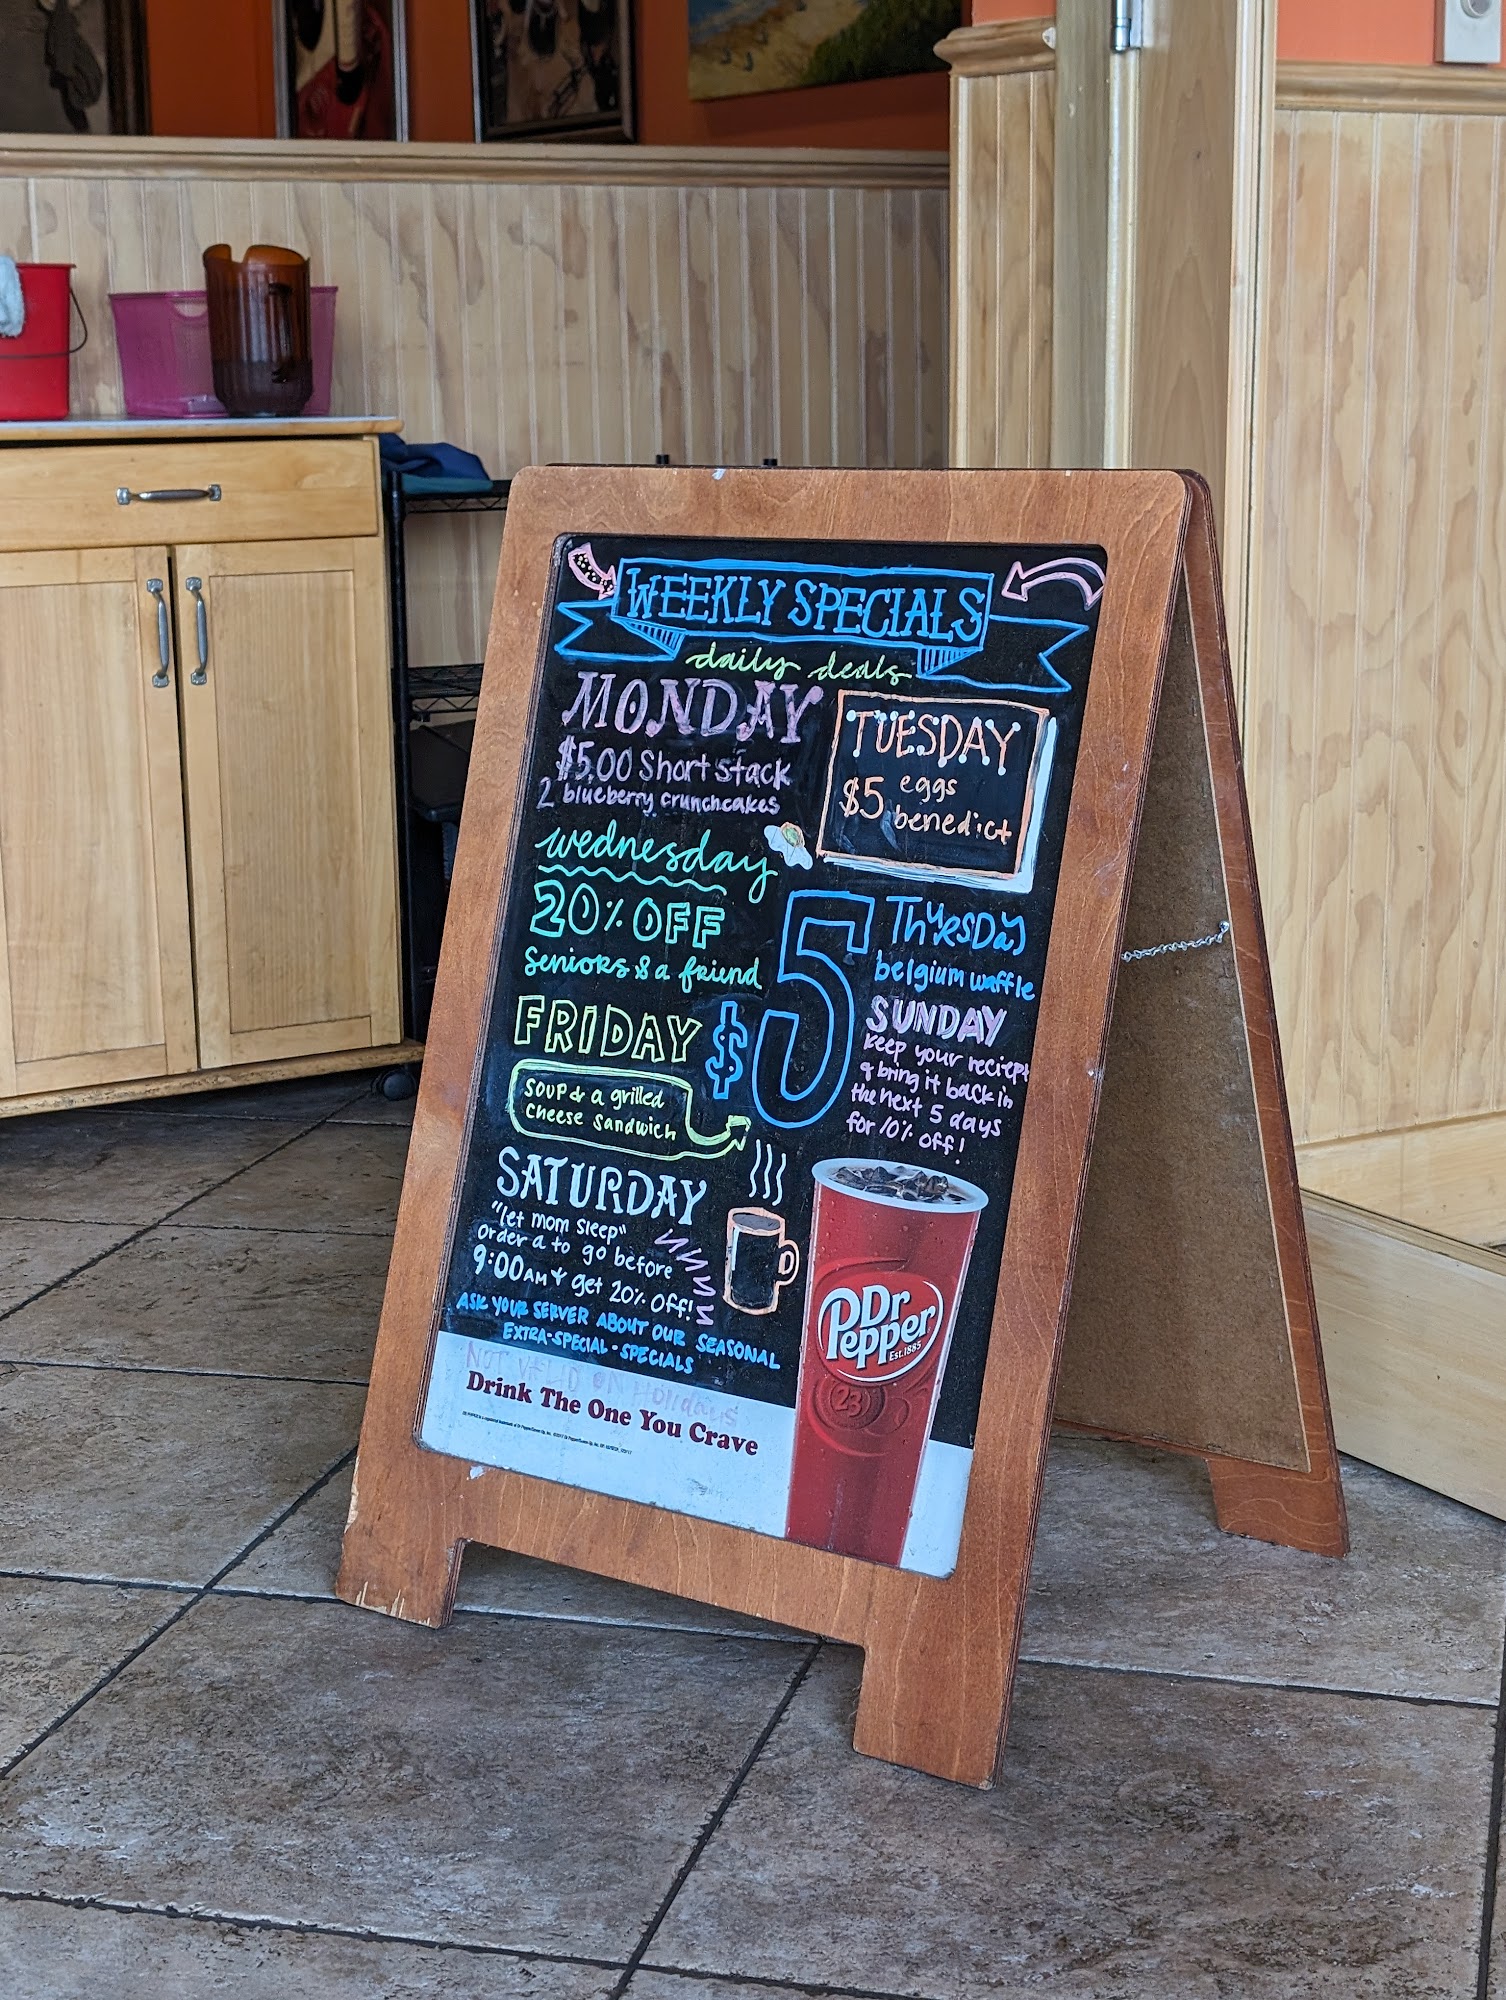 WEEKLY SPECIALS
daily deals
MONDAY
$5.00 Short stack
2 blueberry crunchcakes
TUESDAY
$5 eggs
benedict
wednesday
20% OFF
seniors & a friend
THURSDAY
belgium waffle
$5
FRIDAY
SOUP & a grilled
cheese sandwich
SATURDAY
"let mom sleep"
order a to go before
9:00AM & get 20% off!
SUNDAY
keep your reciept
& bring it back in
the next 5 days
for 10% off!
ASK YOUR SERVER ABOUT OUR SEASONAL
EXTRA-SPECIAL-SPECIALS
NOT VALID ON Holidays
Drink The One You Crave
Dr
Pepper
Est. 1885
23